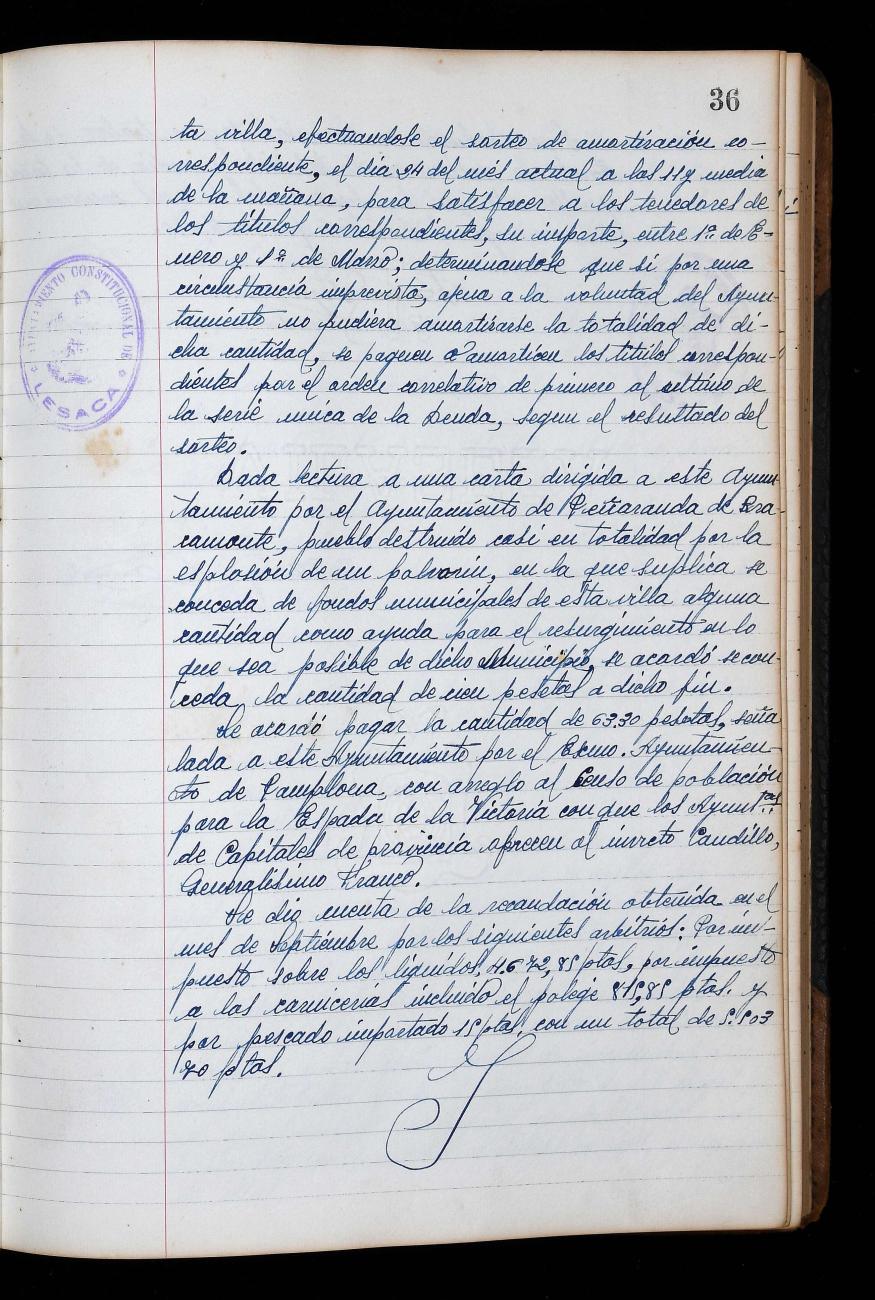 36
ta villa, efectuandose el sorteo de amortización co-
rrespondiente, el día 24 del més actual a las 11 y media
de la mañana, para satisfacer a los tenedores de
los títulos correspondientes, su importe, entre 1º de E-
nero y 1º de Marzo; determinandose que si por una
circunstancia imprevista, agena a la voluntad del Ayun-
tamiento no pudiera amortizarse la totalidad de di-
cha cantidad, se paguen o amorticen los titulos correspon-
dientes por el orden correlativo de primero al ultimo de
la serie unica de la Deuda, segun el resultado del
sorteo.
Dada lectura a una carta dirigida a este Ayun-
tamiento por el Ayuntamiento de Peñaranda de Bra-
camonte, pueblo destruido casi en totalidad por la
esplosión de un polvorin, en la que suplica se
conceda de fondos municipales de esta villa alguna
cantidad como ayuda para el resurgimiento en lo
que sea posible de dicho Municipio, se acordó se con-
ceda la cantidad de cien pesetas a dicho fin.
Se acordó pagar la cantidad de 63,30 pesetas, seña
lada a este Ayuntamiento por el Excmo. Ayuntamien-
to de Pamplona, con arreglo al Censo de población
para la Espada de la Victoria con que los Ayunt.tos
de Capitales de provincia ofrecen al invicto Caudillo,
Generalísimo Franco.
Se dió cuenta de la recaudación obtenida en el
mes de Septiembre por los siguientes arbitrios: Por im-
puesto sobre los líquidos, 4.672,85 ptas, por impuesto
a las carnicerías incluido el 815,85 ptas. y
por pescado importado 15 ptas. con un total de 5.503
70 ptas.
AYUNTAMIENTO CONSTITUCIONAL DE
LESACA